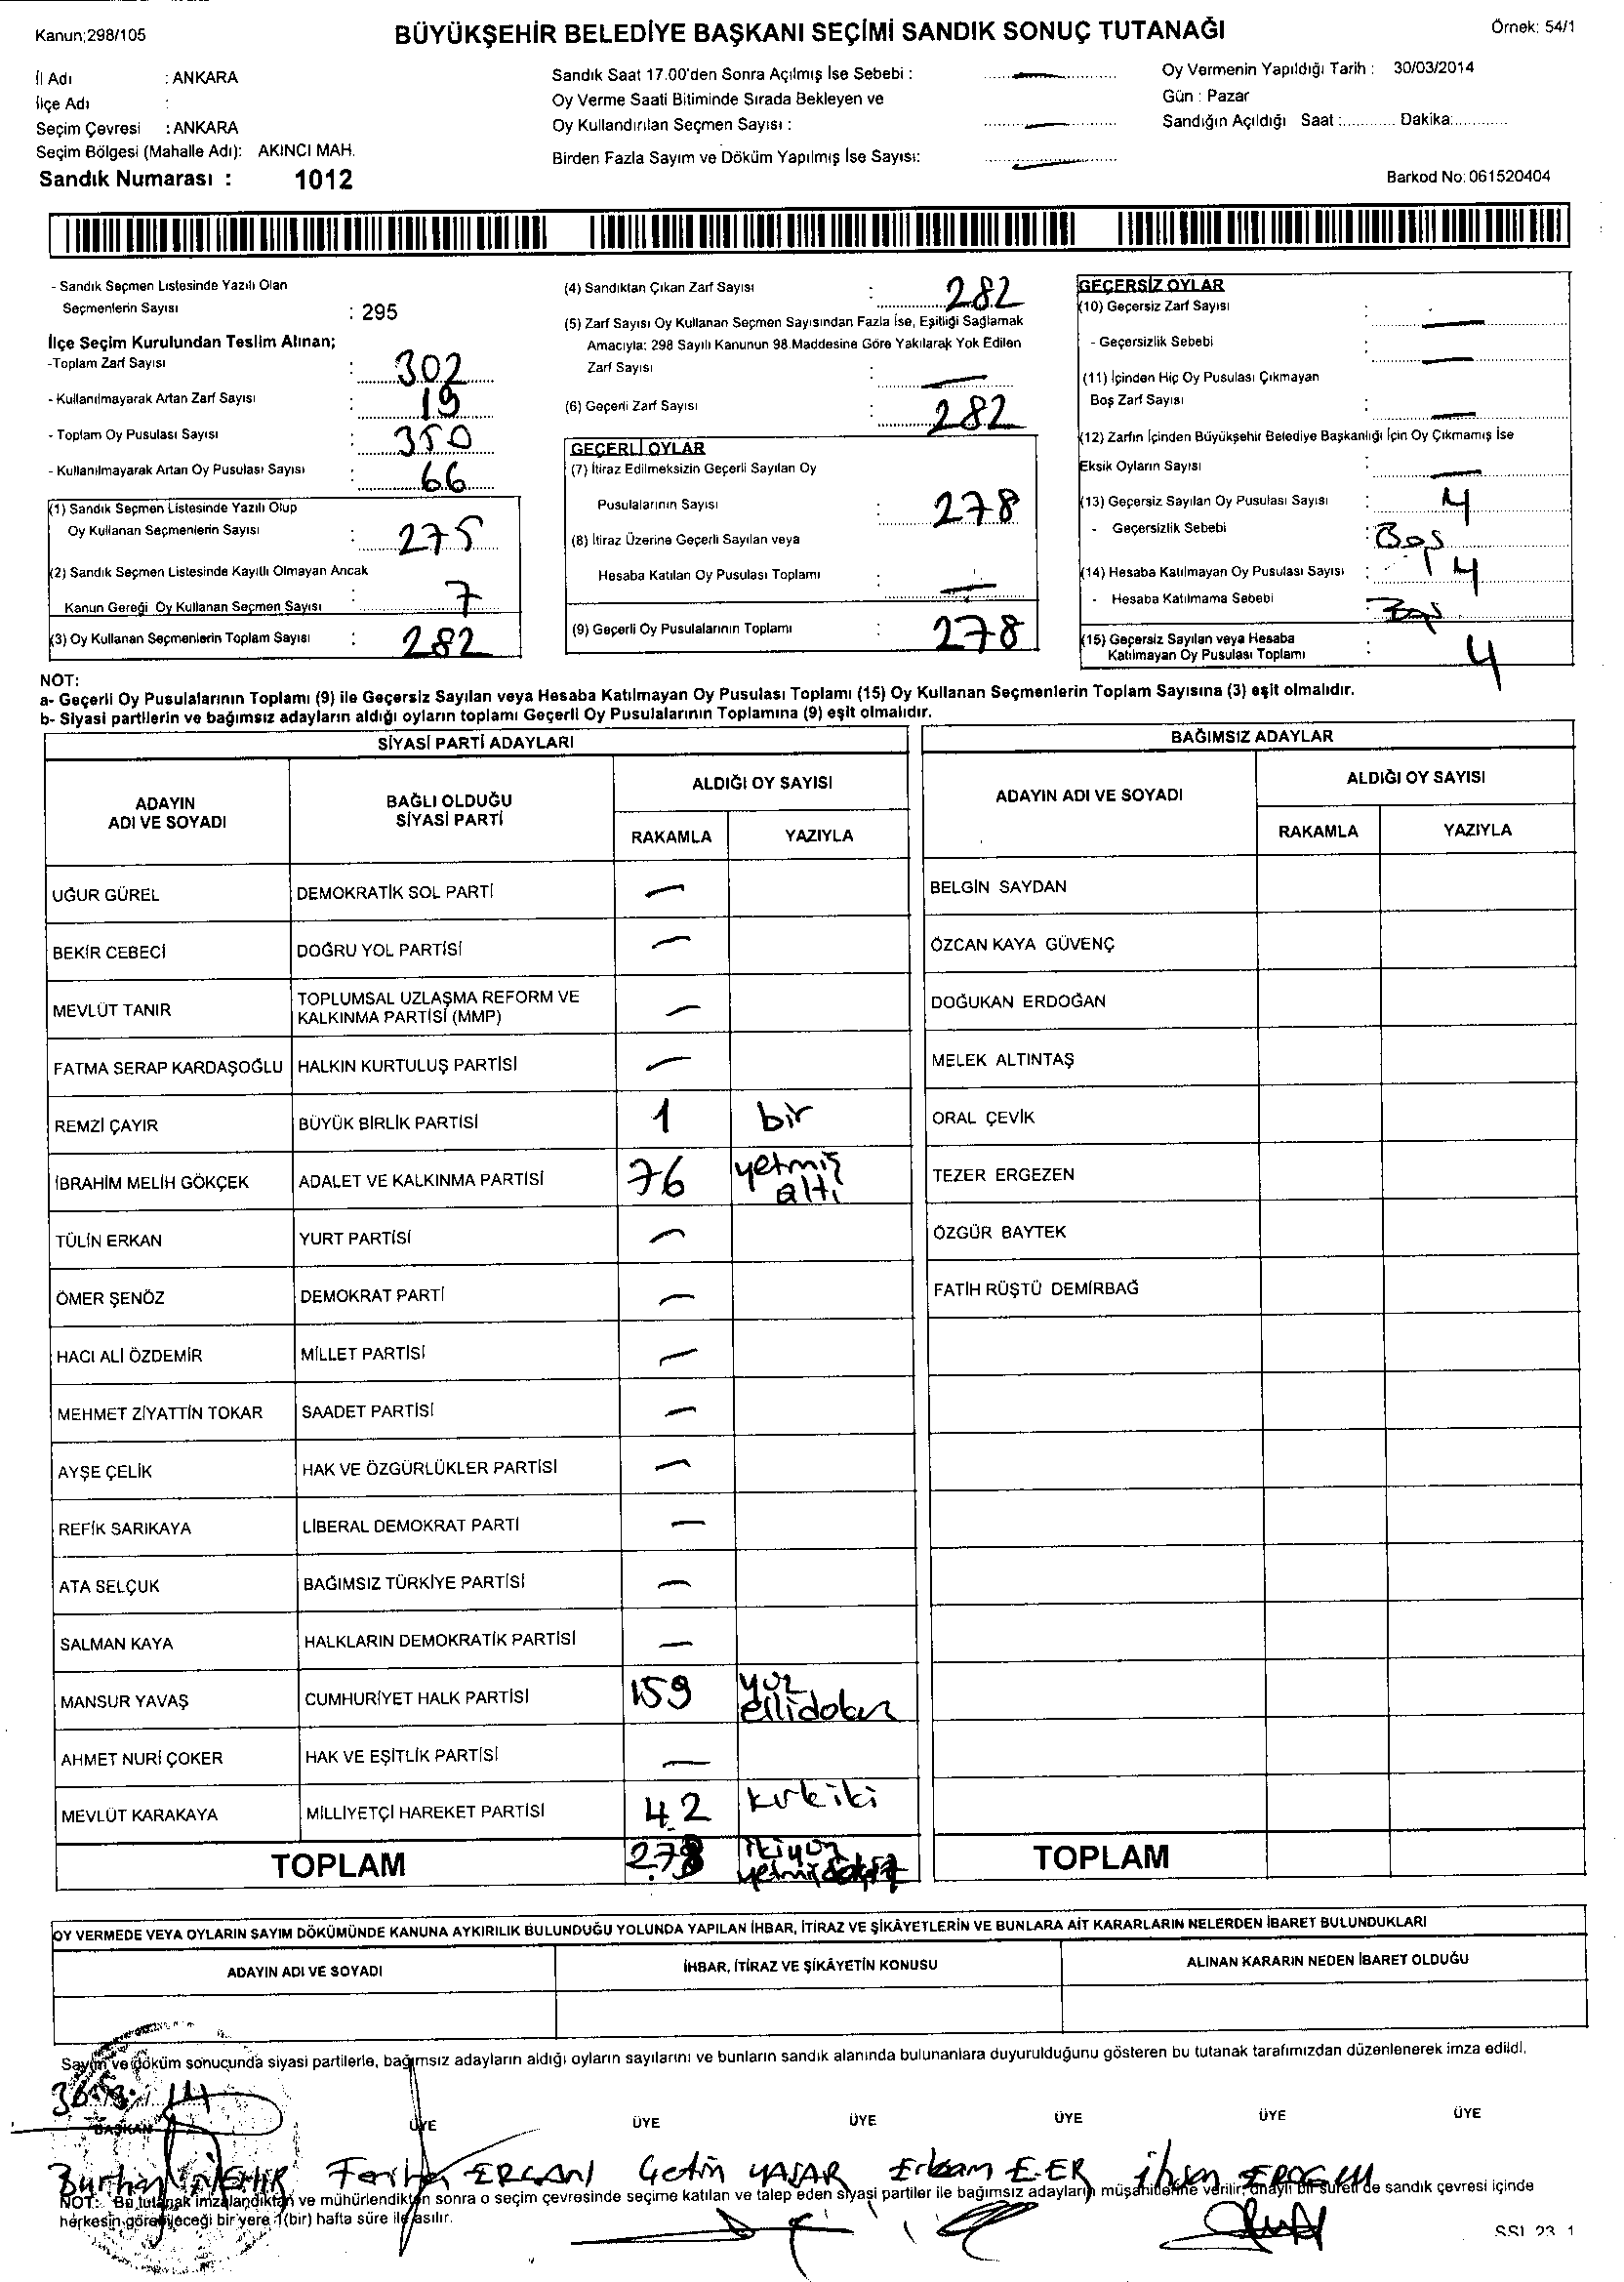 Kanun;298/105
BÜYÜKŞEHİR BELEDİYE BAŞKANI SEÇİMİ SANDIK SONUÇ TUTANAĞI
Örnek: 54/1
İl Adı : ANKARA
İlçe Adı :
Seçim Çevresi : ANKARA
Seçim Bölgesi (Mahalle Adı): AKINCI MAH.
Sandık Numarası : 1012
Sandık Saat 17.00'den Sonra Açılmış İse Sebebi : —
Oy Verme Saati Bitiminde Sırada Bekleyen ve
Oy Kullandırılan Seçmen Sayısı : —
Birden Fazla Sayım ve Döküm Yapılmış İse Sayısı: —
Oy Vermenin Yapıldığı Tarih : 30/03/2014
Gün : Pazar
Sandığın Açıldığı Saat :............ Dakika:............
Barkod No: 061520404
- Sandık Seçmen Listesinde Yazılı Olan
Seçmenlerin Sayısı : 295
İlçe Seçim Kurulundan Teslim Alınan;
-Toplam Zarf Sayısı : 302
- Kullanılmayarak Artan Zarf Sayısı : 19
- Toplam Oy Pusulası Sayısı : 350
- Kullanılmayarak Artan Oy Pusulası Sayısı : 66
(1) Sandık Seçmen Listesinde Yazılı Olup
Oy Kullanan Seçmenlerin Sayısı : 275
(2) Sandık Seçmen Listesinde Kayıtlı Olmayan Ancak
Kanun Gereği Oy Kullanan Seçmen Sayısı : 7
(3) Oy Kullanan Seçmenlerin Toplam Sayısı : 282
(4) Sandıktan Çıkan Zarf Sayısı : 282
(5) Zarf Sayısı Oy Kullanan Seçmen Sayısından Fazla İse, Eşitliği Sağlamak
Amacıyla: 298 Sayılı Kanunun 98.Maddesine Göre Yakılarak Yok Edilen
Zarf Sayısı : —
(6) Geçerli Zarf Sayısı : 282
GEÇERLİ OYLAR
(7) İtiraz Edilmeksizin Geçerli Sayılan Oy
Pusulalarının Sayısı : 278
(8) İtiraz Üzerine Geçerli Sayılan veya
Hesaba Katılan Oy Pusulası Toplamı : —
(9) Geçerli Oy Pusulalarının Toplamı : 278
GEÇERSİZ OYLAR
(10) Geçersiz Zarf Sayısı : —
- Geçersizlik Sebebi : —
(11) İçinden Hiç Oy Pusulası Çıkmayan
Boş Zarf Sayısı : —
(12) Zarfın İçinden Büyükşehir Belediye Başkanlığı İçin Oy Çıkmamış İse
Eksik Oyların Sayısı : —
(13) Geçersiz Sayılan Oy Pusulası Sayısı : 4
- Geçersizlik Sebebi : Boş
(14) Hesaba Katılmayan Oy Pusulası Sayısı : 4
- Hesaba Katılmama Sebebi : Boş
(15) Geçersiz Sayılan veya Hesaba
Katılmayan Oy Pusulası Toplamı : 4
NOT:
a- Geçerli Oy Pusulalarının Toplamı (9) ile Geçersiz Sayılan veya Hesaba Katılmayan Oy Pusulası Toplamı (15) Oy Kullanan Seçmenlerin Toplam Sayısına (3) eşit olmalıdır.
b- Siyasi partilerin ve bağımsız adayların aldığı oyların toplamı Geçerli Oy Pusulalarının Toplamına (9) eşit olmalıdır.
SİYASİ PARTİ ADAYLARI
ADAYIN
ADI VE SOYADI
BAĞLI OLDUĞU
SİYASİ PARTİ
ALDIĞI OY SAYISI
RAKAMLA YAZIYLA
UĞUR GÜREL DEMOKRATİK SOL PARTİ —
BEKİR CEBECİ DOĞRU YOL PARTİSİ —
MEVLÜT TANIR TOPLUMSAL UZLAŞMA REFORM VE
KALKINMA PARTİSİ (MMP) —
FATMA SERAP KARDAŞOĞLU HALKIN KURTULUŞ PARTİSİ —
REMZİ ÇAYIR BÜYÜK BİRLİK PARTİSİ 1 bir
İBRAHİM MELİH GÖKÇEK ADALET VE KALKINMA PARTİSİ 76 yetmiş
altı
TÜLİN ERKAN YURT PARTİSİ —
ÖMER ŞENÖZ DEMOKRAT PARTİ —
HACI ALİ ÖZDEMİR MİLLET PARTİSİ —
MEHMET ZİYATTİN TOKAR SAADET PARTİSİ —
AYŞE ÇELİK HAK VE ÖZGÜRLÜKLER PARTİSİ —
REFİK SARIKAYA LİBERAL DEMOKRAT PARTİ —
ATA SELÇUK BAĞIMSIZ TÜRKİYE PARTİSİ —
SALMAN KAYA HALKLARIN DEMOKRATİK PARTİSİ —
MANSUR YAVAŞ CUMHURİYET HALK PARTİSİ 159 yüz
ellidokuz
AHMET NURİ ÇOKER HAK VE EŞİTLİK PARTİSİ —
MEVLÜT KARAKAYA MİLLİYETÇİ HAREKET PARTİSİ 42 kırkiki
TOPLAM 278 ikiyüz
yetmişsekiz
BAĞIMSIZ ADAYLAR
ADAYIN ADI VE SOYADI
ALDIĞI OY SAYISI
RAKAMLA YAZIYLA
BELGİN SAYDAN
ÖZCAN KAYA GÜVENÇ
DOĞUKAN ERDOĞAN
MELEK ALTINTAŞ
ORAL ÇEVİK
TEZER ERGEZEN
ÖZGÜR BAYTEK
FATİH RÜŞTÜ DEMİRBAĞ
TOPLAM
OY VERMEDE VEYA OYLARIN SAYIM DÖKÜMÜNDE KANUNA AYKIRILIK BULUNDUĞU YOLUNDA YAPILAN İHBAR, İTİRAZ VE ŞİKÂYETLERİN VE BUNLARA AİT KARARLARIN NELERDEN İBARET BULUNDUKLARI
ADAYIN ADI VE SOYADI
İHBAR, İTİRAZ VE ŞİKÂYETİN KONUSU
ALINAN KARARIN NEDEN İBARET OLDUĞU
Sayım ve döküm sonucunda siyasi partilerle, bağımsız adayların aldığı oyların sayılarını ve bunların sandık alanında bulunanlara duyurulduğunu gösteren bu tutanak tarafımızdan düzenlenerek imza edildi.
BAŞKAN ÜYE ÜYE ÜYE ÜYE ÜYE ÜYE
Burhan ERGANİ Çetin YAŞAR Erkam EER
NOT: Bu tutanak imzalandıktan ve mühürlendikten sonra o seçim çevresinde seçime katılan ve talep eden siyasi partiler ile bağımsız adayların müşahitlerine verilir, onaylı bir sureti de sandık çevresi içinde
herkesin görebileceği bir yere 1(bir) hafta süre ile asılır.